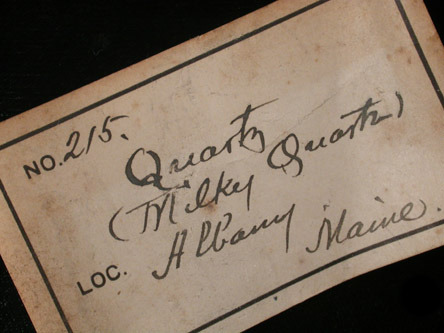 NO. 215.
Quartz
(Milky Quartz)
LOC. Albany Maine.